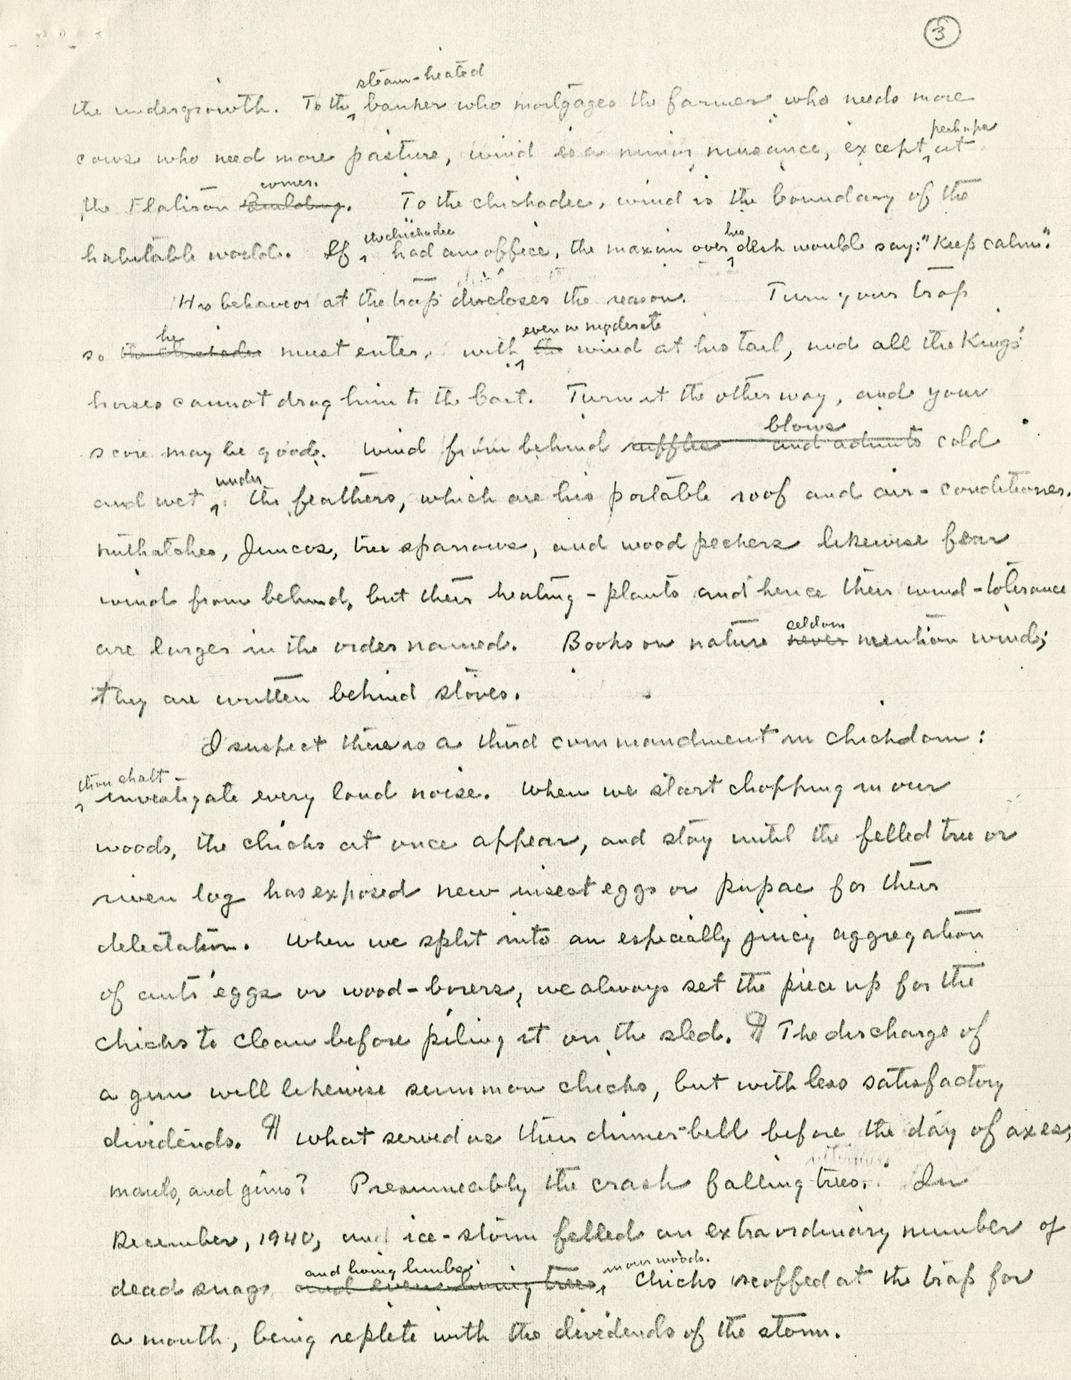 3
steam-heated
the undergrowth. To the banker who mortgages the farmer who needs more
perhaps
cows who need more pasture, wind is a minor nuisance, except at
corner.
the Flatiron Building. To the chickadee, wind is the boundary of the
the chickadee his
habitable world. If had an office, the maxim over desk would say: "Keep calm".
His behavior at the trap discloses the reason. Turn your trap
he even a moderate
so the chickadee must enter, with the wind at his tail, and all the Kings'
horses cannot drag him to the bait. Turn it the other way, and your
blows
score may be good. Wind from behind ruffles and admits cold
under
and wet the feathers, which are his portable roof and air-conditioner.
Nuthatches, Juncos, tree sparrows, and woodpeckers likewise fear
wind from behind, but their heating-plants and hence their wind-tolerance
seldom
are larger in the order named. Books on nature never mention wind;
they are written behind stoves.
I suspect there is a third commandment in chickdom:
thou shalt
investigate every loud noise. When we start chopping in our
woods, the chicks at once appear, and stay until the felled tree or
riven log has exposed new insect eggs or pupae for their
delectation. When we split into an especially juicy aggregation
of ants' eggs or wood-borers, we always set the piece up for the
chicks to clean before piling it on the sled. ¶ The discharge of
a gun will likewise summon chicks, but with less satisfactory
dividends. ¶ What served as their dinner-bell before the day of axes,
mauls, and guns? Presumeably the crash falling trees. In
December, 1940, an ice-storm felled an extraordinary number of
and living limbs in our woods.
dead snags and even living trees, Chicks scoffed at the trap for
a month, being replete with the dividends of the storm.